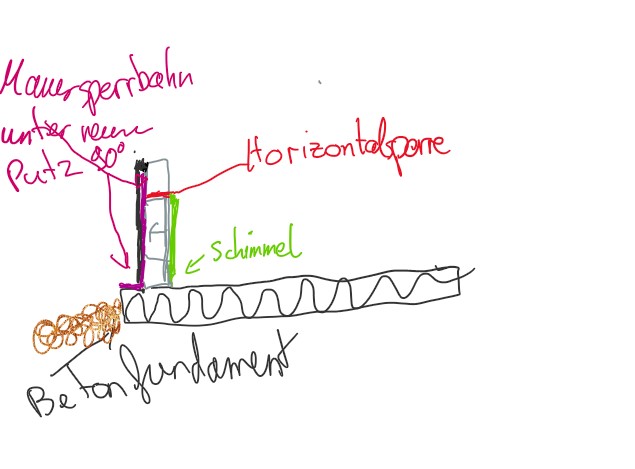 Mauersperrbahn
unter neuem
Putz 90°
Horizontalsperre
Schimmel
Betonfundament